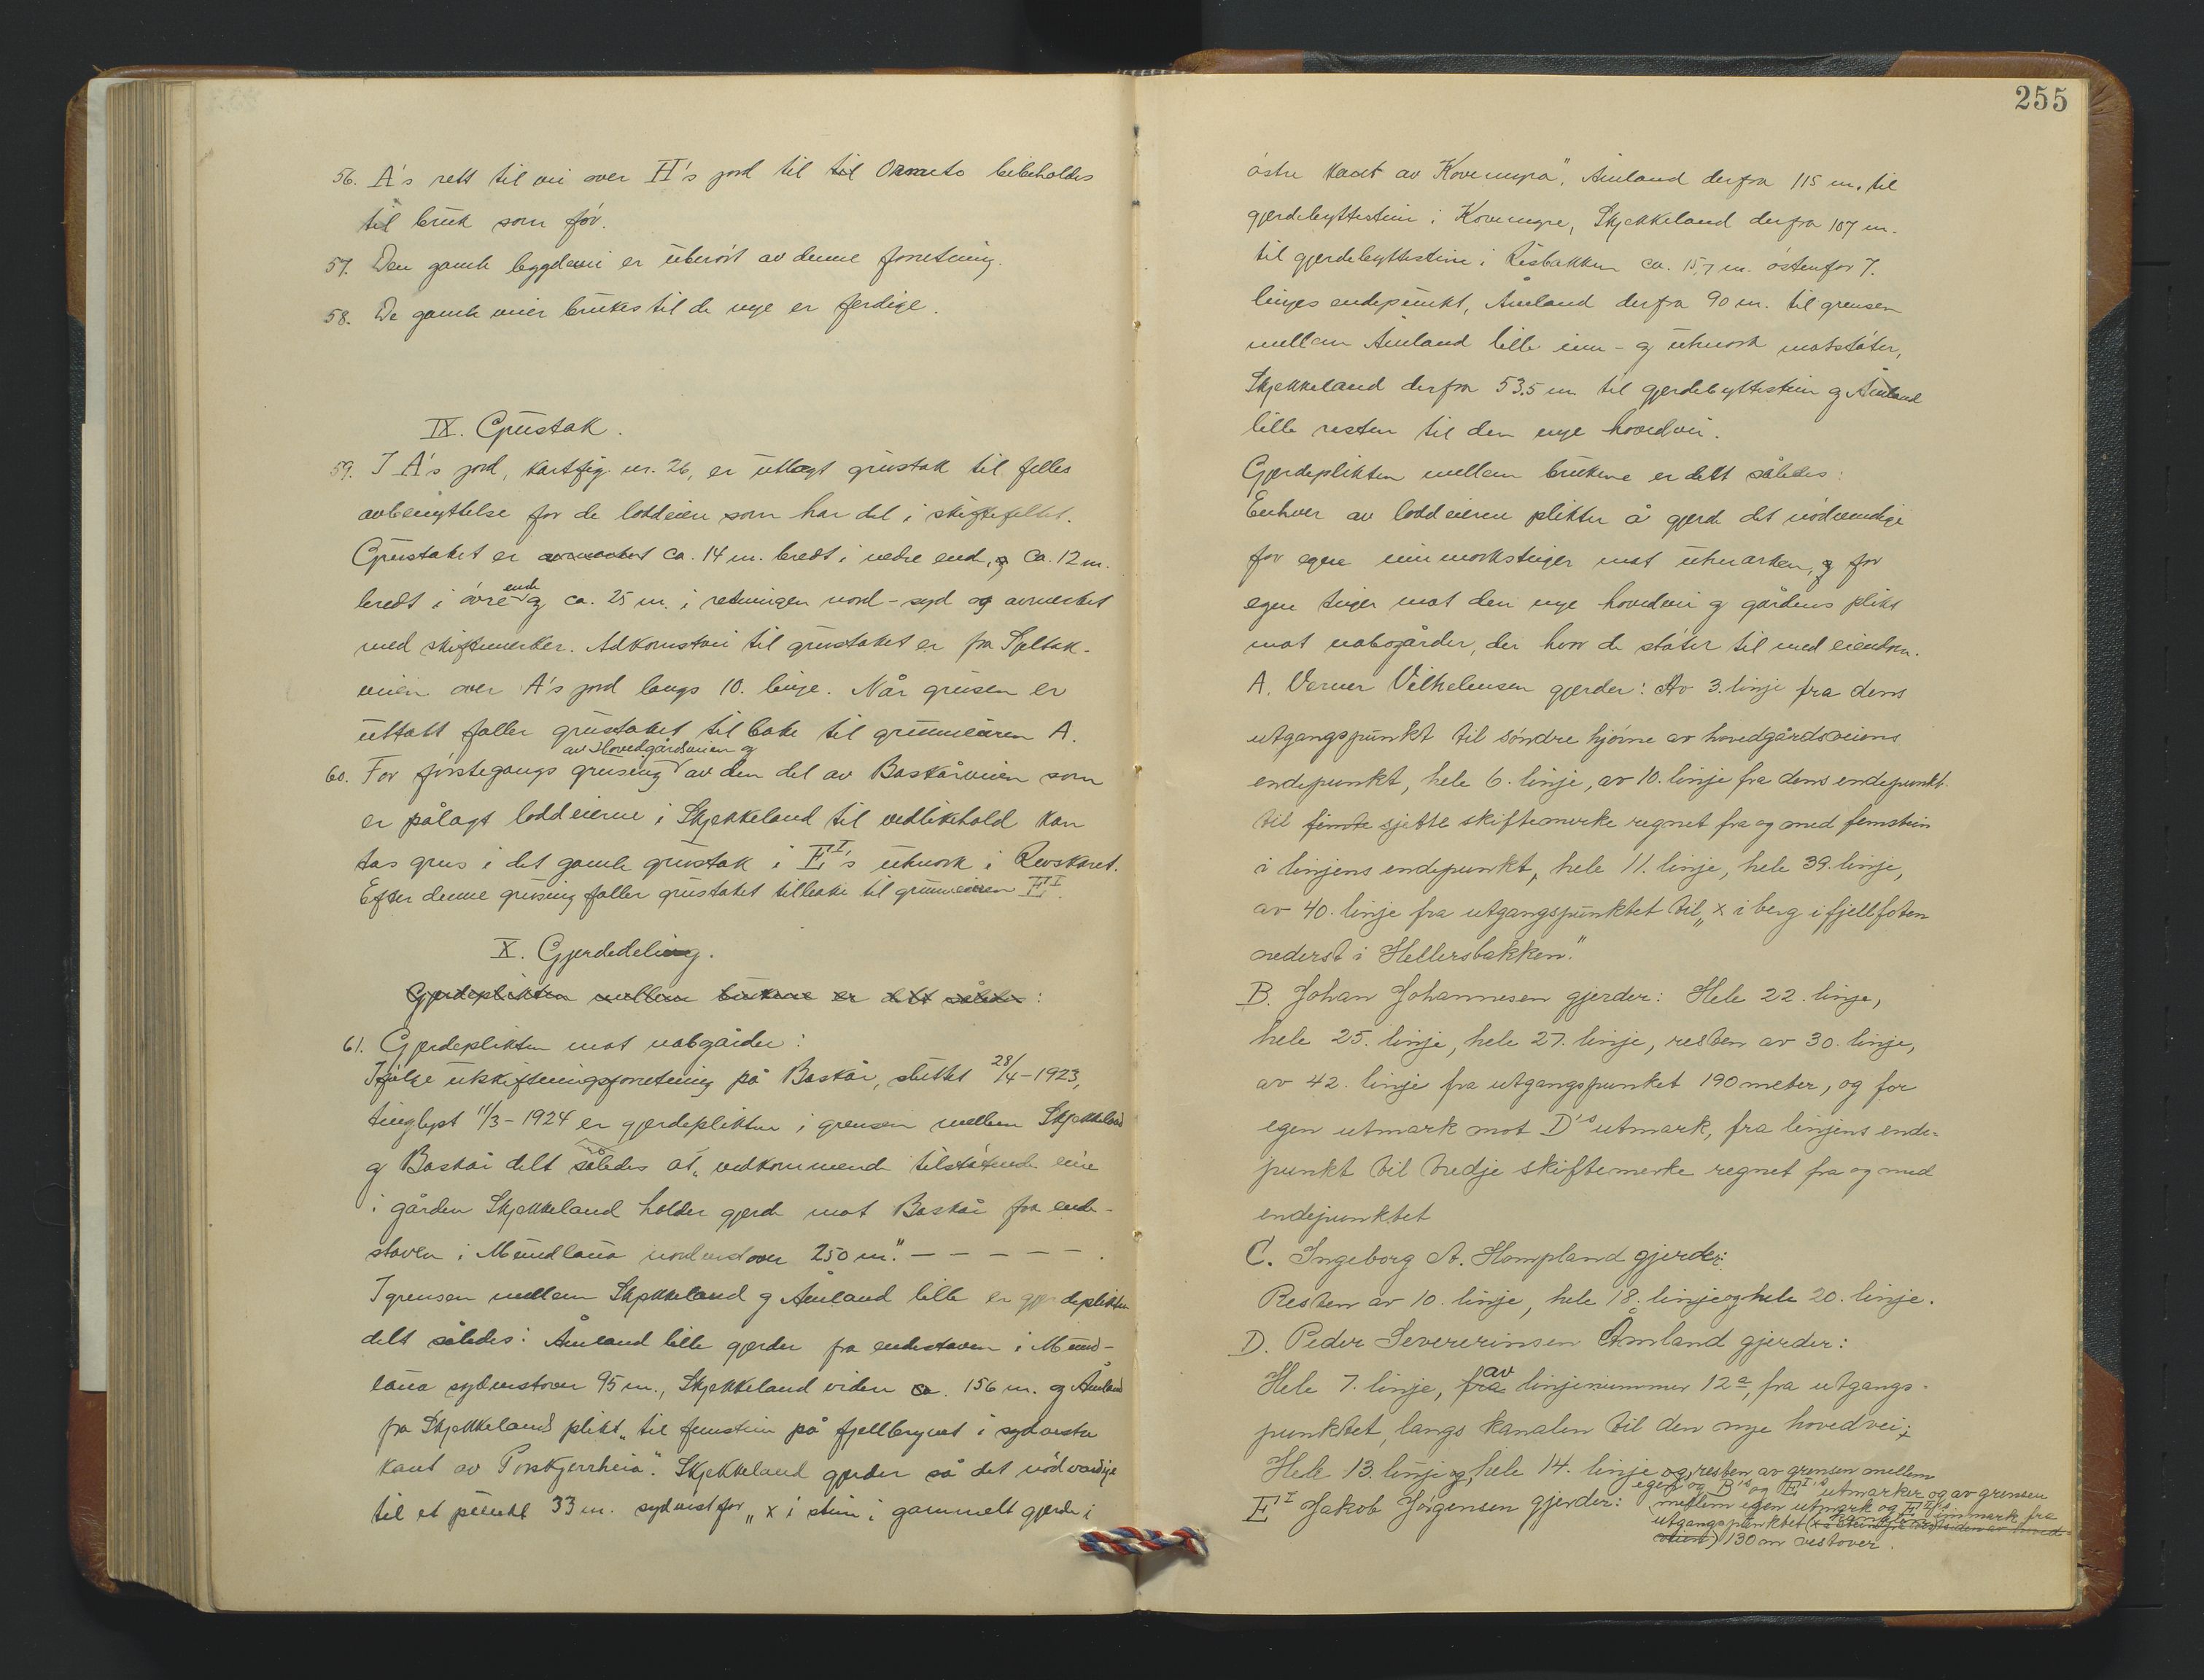 56. A's rett til vei over H's jord til til beibeholdes
til bruk som før.
57. Den gamle bygdevei er uberørt av denne forretning.
58. De gamle veier brukes til de nye er ferdige.
IX. Grustak.
59. I A's jord, kartfig. nr. 26, er utlagt grustak til felles
avbenyttelse for de loddeiere som har del i skiftefeltet.
Grustaket er avmerket ca. 14 m. bredt i nedre ende, og ca. 12 m.
bredt i øvre ende og ca. 25 m. i retningen nord-syd og avmerket
med skiftemerker. Adkomstvei til grustaket er fra
veien over A's jord langs 10. linje. Når grusen er
uttatt faller grustaket tilbake til grunneieren A.
60. For førstegangs grusing av Hovedgårdsveien og av den del av Baskårveien som
er pålagt loddeierne i Skjekkeland til vedlikehold kan
tas grus i det gamle grustak i E I's utmark i Revskaret.
Efter denne grusing faller grustaket tilbake til grunneieren E I.
X. Gjerdedeling.
Gjerdeplikten mellem brukene er delt således:
61. Gjerdeplikten mot nabogårder:
Ifølge utskiftningsforretning på Baskår, sluttet 28/4-1923,
tinglyst 11/3-1924 er gjerdeplikten i grensen mellem Skjekkeland
og Baskår delt således at „vedkommende tilstøtende eier
i gården Skjekkeland holder gjerde mot Baskår fra ende-
staven i Mundlaua nordvestover 250 m." – – – – – .
I grensen mellem Skjekkeland og Åmland lille er gjerdeplikten
delt således: Åmland lille gjerder fra endestaven i Mund-
laua sydvestover 95 m., Skjekkeland videre ca. 156 m. og Åmland
fra Skjekkelands plikt „til femstein på fjellbrynet i sydvestre
kant av Torskjerrheia". Skjekkeland gjerder så det nødvendige
til et punkt 33 m. sydvest for „x i stein i gammelt gjerde i
255
østre kant av Kovemyra", Åmland derfra 115 m. til
gjerdebyttestein i Kovemyra, Skjekkeland derfra 107 m.
til gjerdebyttestein i Risbakken ca. 15,7 m. østenfor 7.
linjes endepunkt, Åmland derfra 90 m. til grensen
mellem Åmland lille inn- og utmark motstøter,
Skjekkeland derfra 53.5 m. til gjerdebyttestein og Åmland
lille resten til den nye hovedvei.
Gjerdeplikten mellem brukene er delt således:
Enhver av loddeierne plikter å gjerde det nødvendige
for egne innmarksteiger mot utmarken, og for
egne teiger mot den nye hovedvei og gårdens plikt
mot nabogårder, der hvor de støter til med eiendom.
A. Verner Vilhelmsen gjerder: Av 3. linje fra dens
utgangspunkt til søndre hjørne av hovedgårdsveiens
endepunkt, hele 6. linje, av 10. linje fra dens endepunkt
til femte sjette skiftemerke regnet fra og med femstein
i linjens endepunkt, hele 11. linje, hele 39. linje,
av 40. linje fra utgangspunktet til „x i berg i fjellfoten
nederst i Hellersbakken."
B. Johan Johannesen gjerder: Hele 22. linje,
hele 25. linje, hele 27. linje, resten av 30. linje,
av 42. linje fra utgangspunket 190 meter, og for
egen utmark mot D's utmark, fra linjens ende-
punkt til tredje skiftemerke regnet fra og med
endepunktet
C. Ingeborg A. Hompland gjerder:
Resten av 10. linje, hele 18. linje og hele 20. linje.
D. Peder Severerinsen Åmland gjerder:
Hele 7. linje, fra av linjenummer 12a, fra utgangs-
punktet, langs kanalen til den nye hovedvei;
Hele 13. linje og, hele 14. linje og, resten av grensen mellem
egen og B's og E I's utmarker og av grensen
E I Jakob Jørgensen gjerder: mellem egen utmark og E II's innmark fra
utgangspunktet
130 m vestover.